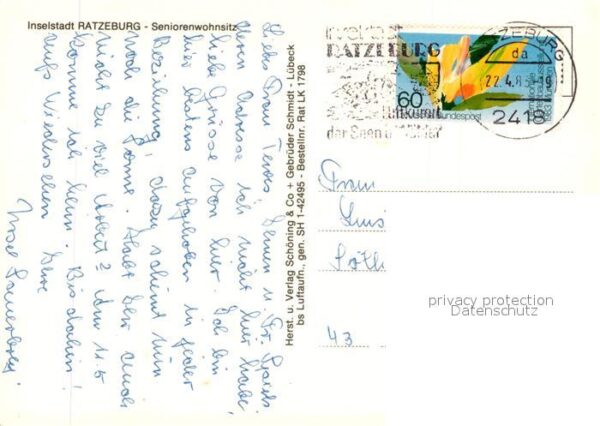 Inselstadt RATZEBURG - Seniorenwohnsitz
Liebe Frau
deren Adresse ich nicht hier habe,
liebe Grüße von hier. Ich bin
hier bestens aufgehoben in jeder
Beziehung, dazu scheint nun
noch die Sonne. Habt Ihr auch
nicht zu viel Arbeit? Am 11.5
komme ich heim. Bis dahin!
Aufs Wiedersehen Ihre
Herst. u. Verlag Schöning & Co + Gebrüder Schmidt - Lübeck
bs Luftaufn., gen. SH 1-42495 - Bestellnr. Rat LK 1798
Inselstadt
RATZEBURG
Luftkurort
der Seen
60
bundespost
RATZEBURG
da
22.4.8
2418
Frau
43
privacy protection
Datenschutz